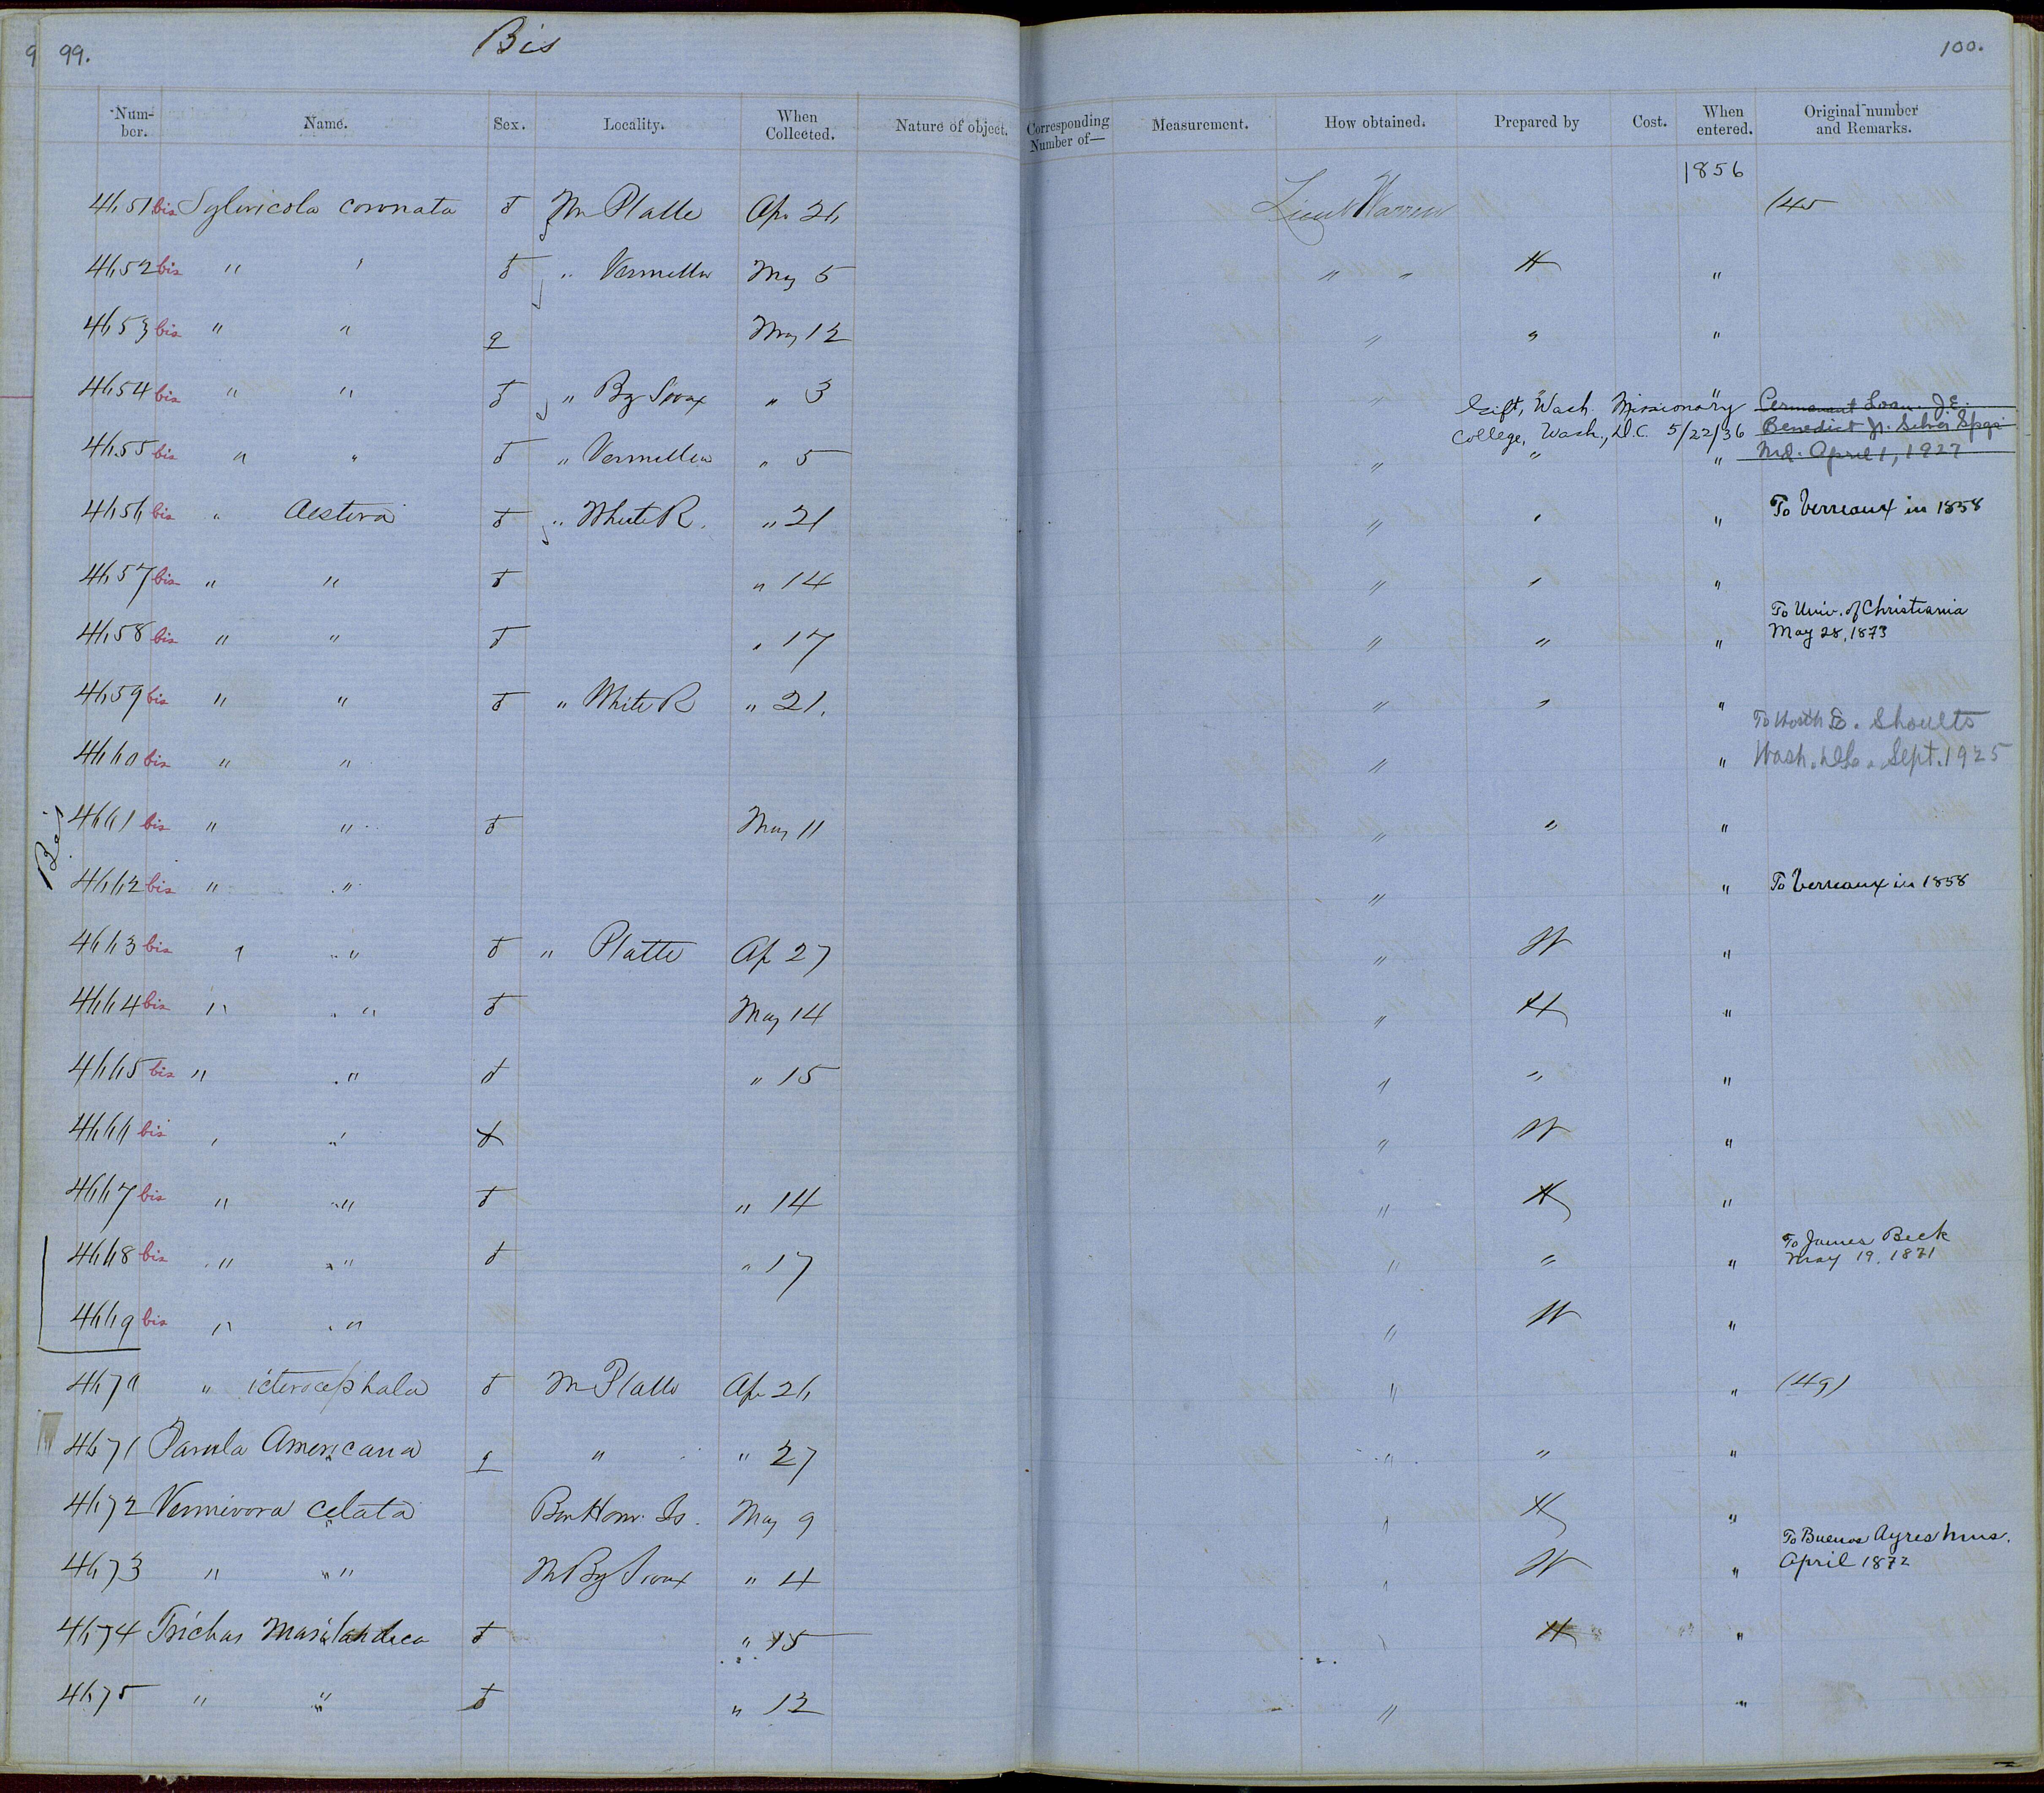 99. Bis 100.
Num-ber. Name. Sex. Locality. When Collected. Nature of object. Corresponding Number of— Measurement. How obtained. Prepared by Cost. When entered. Original number and Remarks.
1856
4651 bis Sylvicola coronata ♂ M Platte Ap 26 Lieut Warren (45
4652 bis " " ♂ " Vermillion May 5 " " H "
4653 bis " " ♀ May 12 " " "
4654 bis " " ♂ " Big Sioux " 3 " " "
Gift, Wash. Missionary Permanent Loan. J.E.
College, Wash., D.C. 5/22/36 Benedict Jr. Silver Spgs
Md. April 1, 1927
4655 bis " " ♂ " Vermillion " 5 " " "
4656 bis " Aestiva ♂ " White R. " 21 " " " To Verreaux in 1858
4657 bis " " ♂ " 14 " " "
4658 bis " " ♂ " 17 " " " To Univ. of Christiania
May 28, 1873
4659 bis " " ♂ " White R " 21. " " "
4660 bis " " " " To Worth E. Shoults
Wash. Sept. 1925
Bis
4661 bis " " ♂ May 11 " " "
4662 bis " " " " To Verreaux in 1858
4663 bis " " ♂ " Platte Ap 27 " W "
4664 bis " " ♂ May 14 " H "
4665 bis " " ♂ " 15 " " "
4666 bis " " " W "
4667 bis " " ♂ " 14 " H "
4668 bis " " ♂ " 17 " " " To James Beck
May 19, 1871
4669 bis " " " W "
4670 " icterocephala ♂ M Platte Ap 26 " " (49)
4671 Parula Americana ♀ " " 27 " " "
4672 Vermivora celata Bon Hom. Is. May 9 " H "
4673 " " M Big Sioux " 4 " W " To Buenos Ayres Mus.
April 1872
4674 Trichas Marilandica ♂ " 15 " H "
4675 " " ♂ " 12 " "